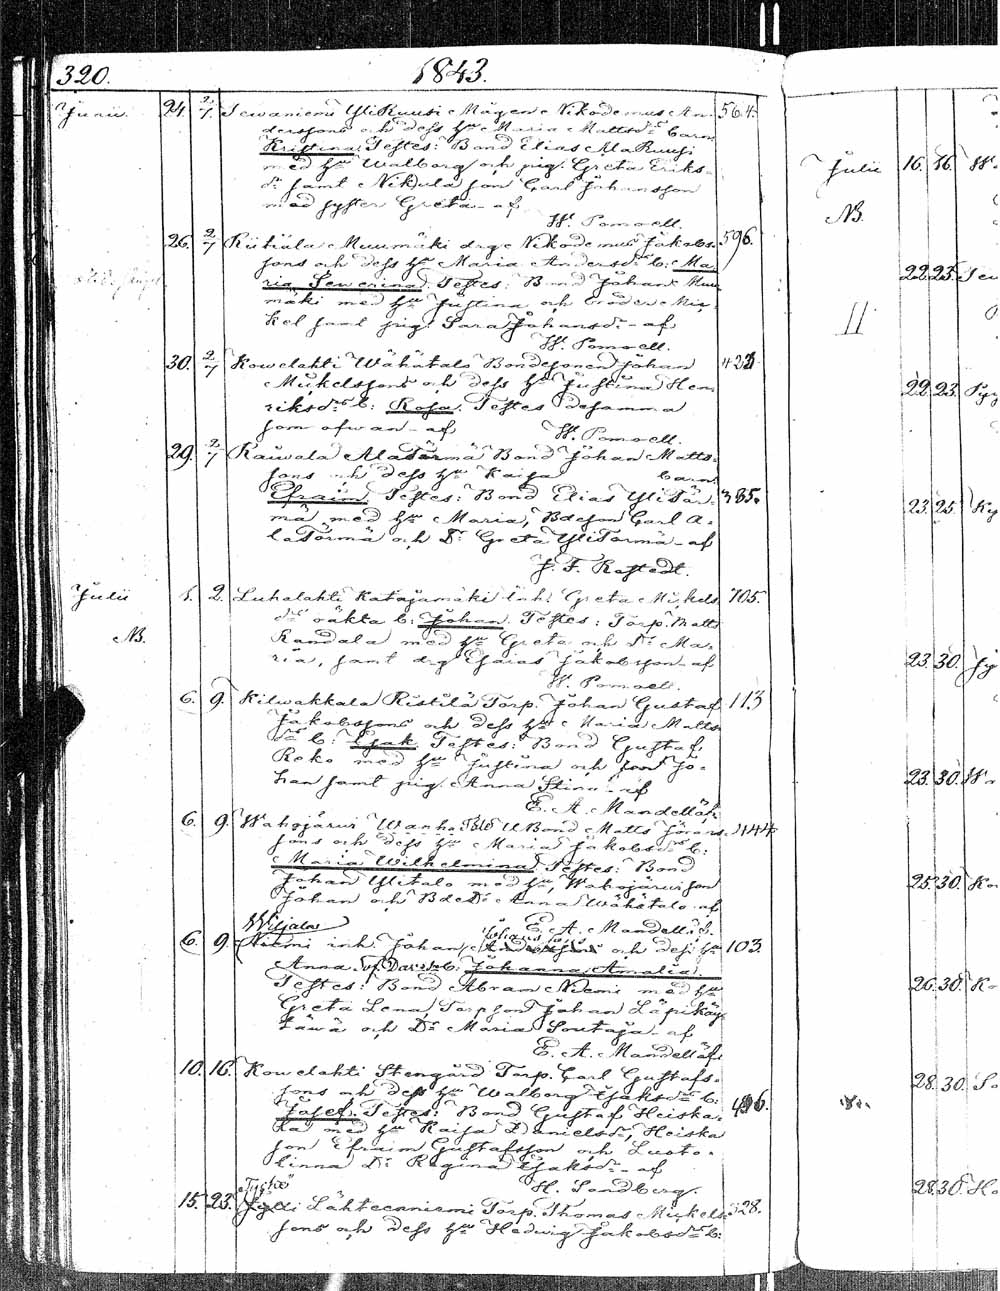 320. 1843.
Junii. 24. 2/7 Sewaniemi YliRuusi Mågen Nikodemus An- 564.
derssons och dess hu Maria Mattsdr barn
Kristina. Testes: Bond Elias AlaRuusi
med hu Walborg och pig. Greta Eriks-
dr samt Nikula son Carl Johansson
med syster Greta - af
W. Pomoell.
26. 2/7 Riitiala Muumäki drg. Nikodemus Jakobs- 596.
sons och dess hu Maria Andersdr b: Ma-
ria Sewerina. Testes: Bond Johan Muu-
mäki med hu Justina och broder Mic-
kel samt pig. Sara Johansdr - af
W. Pomoell.
30. 2/7 Kowelahti Wähätalo Bondesonen Johan
Mickelssons och dess hu Justina Hen-
riksdrs b: Rosa. Testes desamma
som ofwan - af W. Pomoell.
29. 2/7 Räiwälä AlaTörmä Bond Johan Matts-
sons och dess hu Kaisa barn
Efraim. Testes: Bond Elias YliTör- 385.
mä med hu Maria, Bdeson Carl A-
laTörmä och Dr Greta YliTörmä - af
J. F. Rostedt.
Julii 1. 2. Luhalahti Katajamäki Inh. Greta Mickels- 705.
NB. drs oäkta b: Johan. Testes: Torp. Matts
Randala med hu Greta och Dr Ma-
ria, samt drg Esaias Jakobsson - af
W. Pomoell.
6. 9. Kilwakkala Ristilä Torp. Johan Gustaf 113
Jakobssons och dess hu Maria Matts-
drs b: Isak. Testes: Bond Gustaf
Reko med hu Justina och son Jo-
han samt pig. Anna Stina - af
E. A. Mandellöf.
6. 9. Wahojärwi WanhaTalo UBond Matts Görans- 144
sons och dess hu Maria Jakobsdrs b:
Maria Wilhelmina. Testes: Bond
Johan Ylitalo med hu, Wahojärwi son
Johan och BdeDr Anna Wähätalo - af
E. A. Mandellöf.
6. 9. Niemi inh. Johan och dess hu 103.
Anna b: Johanna Amalia.
Testes: Bond Abram Niemi med hu
Greta Lena, Torpson Johan Läpikäy-
täwä och Dr Maria Soutaja - af
E. A. Mandellöf.
10. 16. Kowelahti Stengård Torp. Carl Gustafs-
sons och dess hu Walborg Isaksdrs b:
Josef. Testes: Bond Gustaf Heiska-
la med hu Kaisa Danielsdr, Heiska
son Efraim Gustafsson och Luoto-
linna Dr Regina Isaksdr - af
H. Sandberg.
15. 23. Lähteenniemi Torp. Thomas Mickels- 328.
sons och dess hu Hedwig Jakobsdrs b:
Julii 16. 16.
NB.
22. 23.
22. 23.
23. 25.
23. 30.
23. 30.
25. 30.
26. 30.
28. 30.
28. 30.